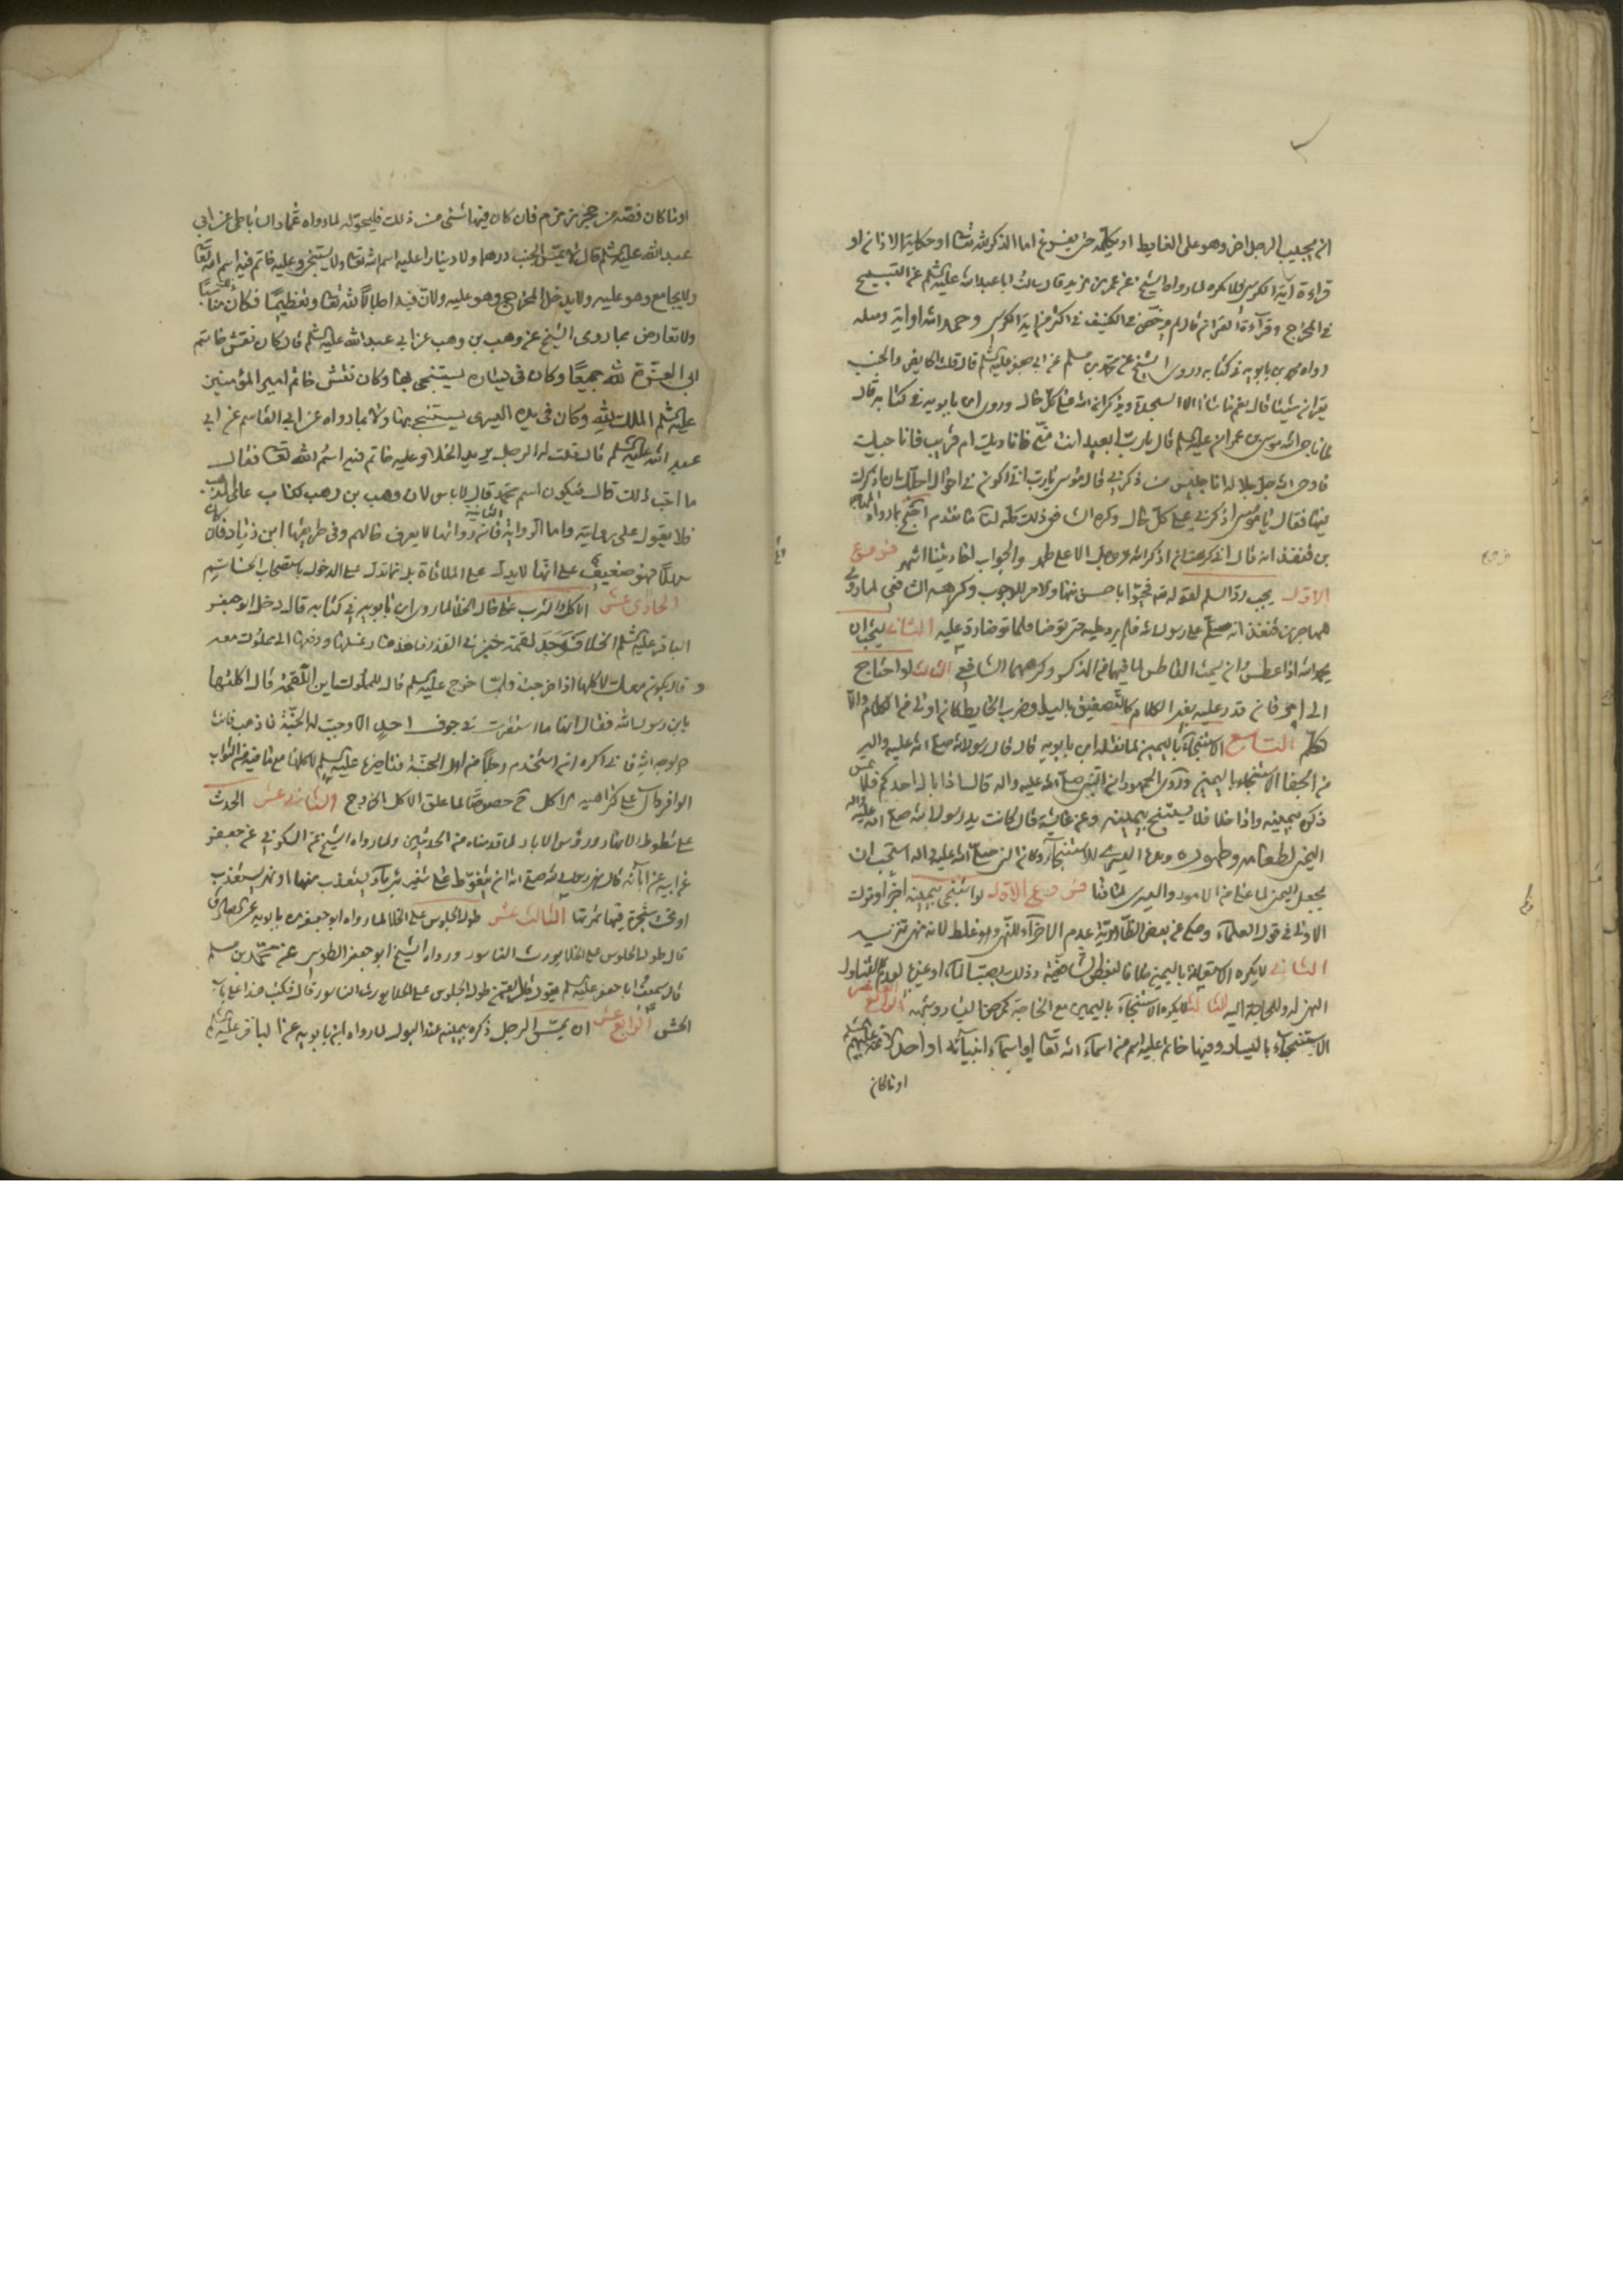 ان يجيب الرجل اخر وهو على الغايط او يكلمه حتى يفرغ اما الذكر لله تعالى او حكاية الاذان او
قراءة آية الكرسي فلا يكره لما رواه الشيخ عن عمر بن يزيد قال سالت ابا عبد الله عليه السلم عن التسبيح
في المخرج وقراءة القران قال لم يرخص في الكنيف في اكثر من اية الكرسي وحمد الله او اية ومثله
رواه محمد بن بابويه في كتابه وروى الشيخ عن محمد بن مسلم عن ابي جعفر عليه السلم قال قلت الحايض والجنب
يقران شيئا قال نعم ما شاءا الا السجدة ويذكران الله على كل حال وروى ابن بابويه في كتابه قال
لما ناجى الله موسى بن عمران عليه السلم قال يا رب ابعيد انت مني فاناديك ام قريب فاناجيك
فاوحى الله جل جلاله انا جليس من ذكرني فقال موسى يا رب اني اكون في احوال اجلك ان اذكرك
فيها فقال يا موسى اذكرني على كل حال وكره الشافعي ذلك كله لنا ما تقدم احتج بما رواه المهاجر
بن قنفذ انه قال اني كرهت ان اذكر الله عز وجل الا على طهر والجواب احاديثنا اشهر فروع
الاول يجب رد السلم لقوله تع فحيوا باحسن منها والامر للوجوب وكرهه الشافعي لما روى
المهاجر بن قنفذ انه سلم على رسول الله فلم يرد عليه حتى توضا فلما توضا رد عليه الثاني يستحب ان
يحمد الله اذا عطس وان يسمت العاطس لما فيهما من الذكر وكرههما الشافعي الثالث لو احتاج
الى امر فان قدر عليه بغير الكلام كالتصفيق باليد وضرب الحايط كان اولى من الكلام والا
تكلم التاسع الاستنجاء باليمين لما نقله ابن بابويه قال قال رسول الله صلى الله عليه واله
من الجفا الاستنجاء باليمين وروى الجمهور ان النبي صلى الله عليه واله قال اذا بال احدكم فلا يمس
ذكره بيمينه واذا خلا فلا يستنج بيمينه وعن عائشة قال كانت يد رسول الله صلى الله عليه واله
اليمنى لطعامه وطهوره ويده اليسرى للاستنجاء وكان النبي صلى الله عليه واله استحب ان
يجعل اليمنى لما علا من الامور واليسرى لما دنا فروع الاول لو استنجى بيمينه اجزأ وترك
الاولى في قول العلماء وحكي عن بعض الظاهرية عدم الاجزاء للنهي وهو غلط لانه نهي تنزيه
الثاني لا يكره الاستعانة باليمين خلافا لبعض الشافعية وذلك بصب الماء او غيره لعدم تناول
النهي له وللحاجة اليه الثالث لا يكره الاستنجاء باليمين مع الحاجة كمرض اليسار وشبهه الرابع
الاستنجاء باليسار وفيها خاتم عليه اسم من اسماء الله تعالى او اسماء انبيائه او احد الائمة عليهم السلم
او ما كان
او ما كان فصه من حجر زمزم فان كان فيها شئ من ذلك فليحوله لما رواه عمار الساباطي عن ابي
عبد الله عليه السلم قال لا يمس الجنب درهما ولا دينارا عليه اسم الله تعالى ولا يستنجي وعليه خاتم فيه اسم الله تعالى
ولا يجامع وهو عليه ولا يدخل المخرج وهو عليه ولان فيه اجلالا لله تعالى وتعظيما فكان مناسبا
ولا تعارض بما روى الشيخ عن وهب بن وهب عن ابي عبد الله عليه السلم قال كان نقش خاتم
ابي العزة لله جميعا وكان في يساره يستنجي بها وكان نقش خاتم امير المؤمنين
عليه السلم الملك لله وكان في يده اليسرى يستنجي بها ولا بما رواه عن ابي القاسم عن ابي
عبد الله عليه السلم قال قلت له الرجل يريد الخلاء وعليه خاتم فيه اسم الله تعالى فقال
ما احب ذلك قال فيكون اسم محمد قال لا باس لان وهب بن وهب كذاب عامي المذهب
فلا يعول على روايته واما الرواية الثانية فان رواتها لا يعرف حالهم وفي طريقها ابن زياد فان كان
سهلا فهو ضعيف على انها لا يدل على الملاقاة بل انما تدل على الدخول باستصحاب الخاتم
الحادي عشر الاكل والشرب على حال الخلا لما روى ابن بابويه في كتابه قال دخل ابو جعفر
الباقر عليه السلم الخلا فوجد لقمة خبز في القذر فاخذها وغسلها ودفعها الى مملوك معه
وقال يكون معك لاكلها اذا خرجت فلما خرج عليه السلم قال للمملوك اين اللقمة قال اكلتها
يا بن رسول الله فقال انها ما استقرت في جوف احد الا وجبت له الجنة فاذهب فانت
حر لوجه الله فاني اكره ان استخدم رجلا من اهل الجنة فتاخيره عليه السلم لاكلها مع ما فيه من الثواب
الوافر دال على كراهية الاكل ح خصوصا لما علق الاكل بالخروج الثاني عشر الحدث
على شطوط الانهار ورؤس الابار لما قدمناه من الحديثين ولما رواه الشيخ عن السكوني عن جعفر
عن ابيه عن ابائه قال نهى رسول الله صلى الله ان يتغوط على شفير بئر ماء يستعذب منها او نهر يستعذب
او تحت شجرة فيها ثمرتها الثالث عشر طول الجلوس على الخلا لما رواه ابو جعفر بن بابويه عن الصادق
قال طول الجلوس على الخلا يورث الناسور ورواه الشيخ ابو جعفر الطوسي عن محمد بن مسلم
قال سمعت ابا جعفر عليه السلم يقول قال لقمن طول الجلوس على الخلا يورث الناسور قال فكتب هذا على باب
الحش الرابع عشر ان يمس الرجل ذكره بيمينه عند البول لما رواه ابن بابويه عن الباقر عليه السلم